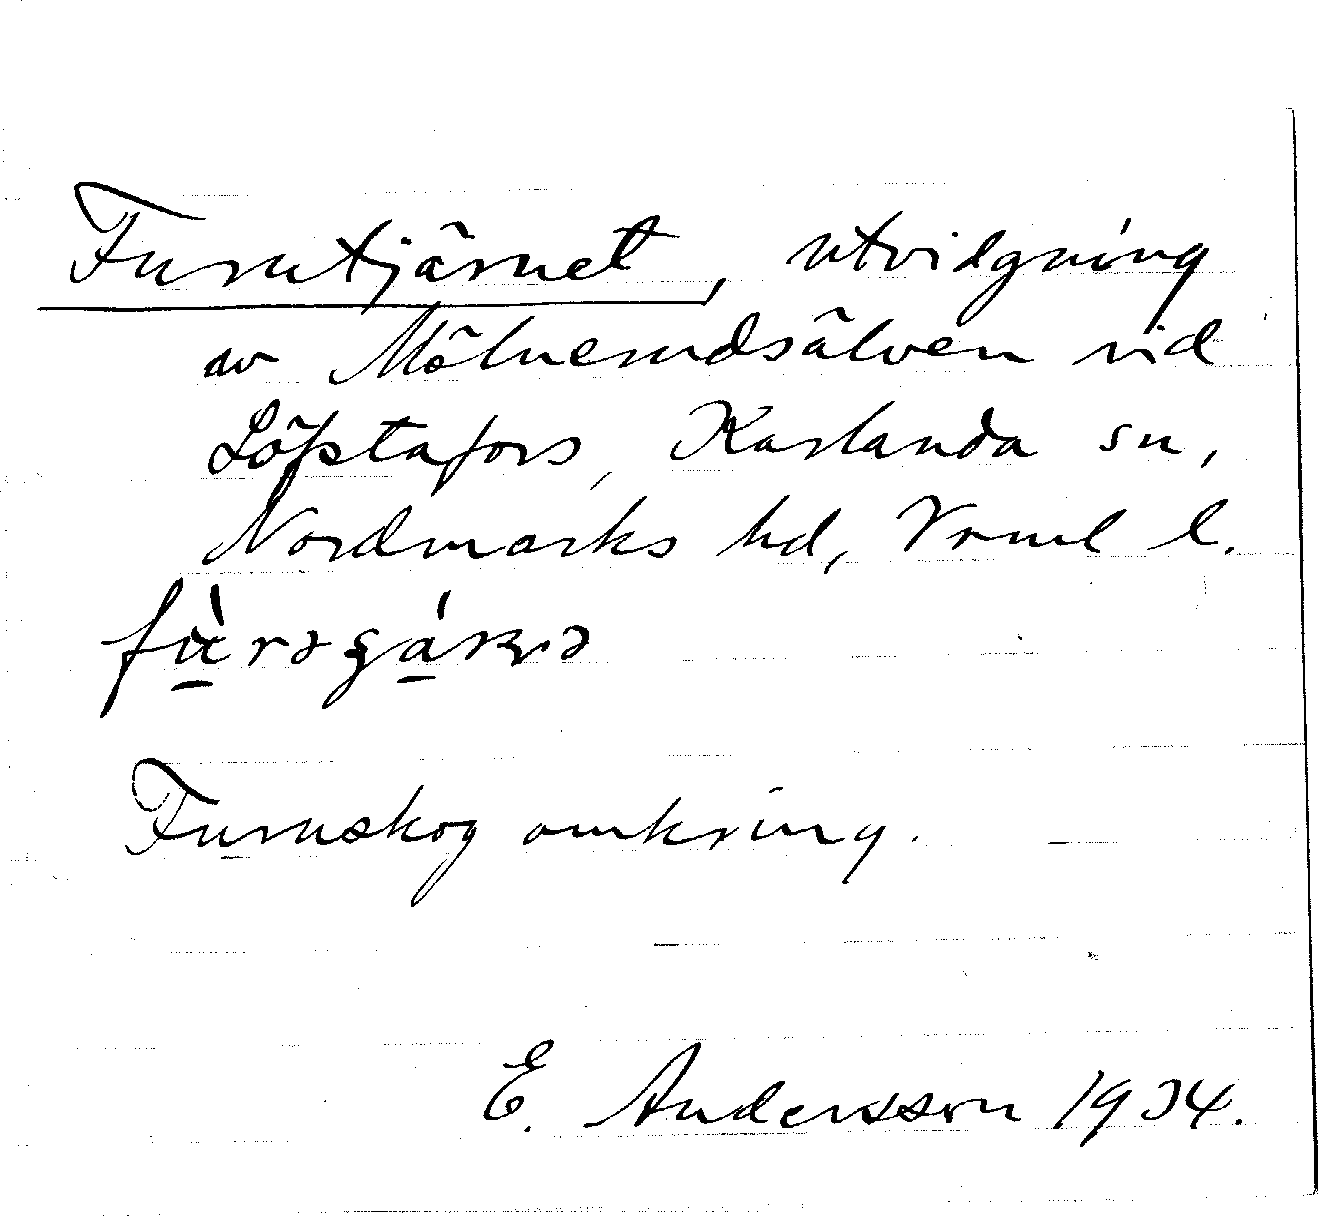 Furutjärnet, utvidgning
av Mölnerudsälven vid
Löpstafors, Karlanda sn,
Nordmarks hd, Vrml l.
Furuskog omkring.
E. Andersson 1934.